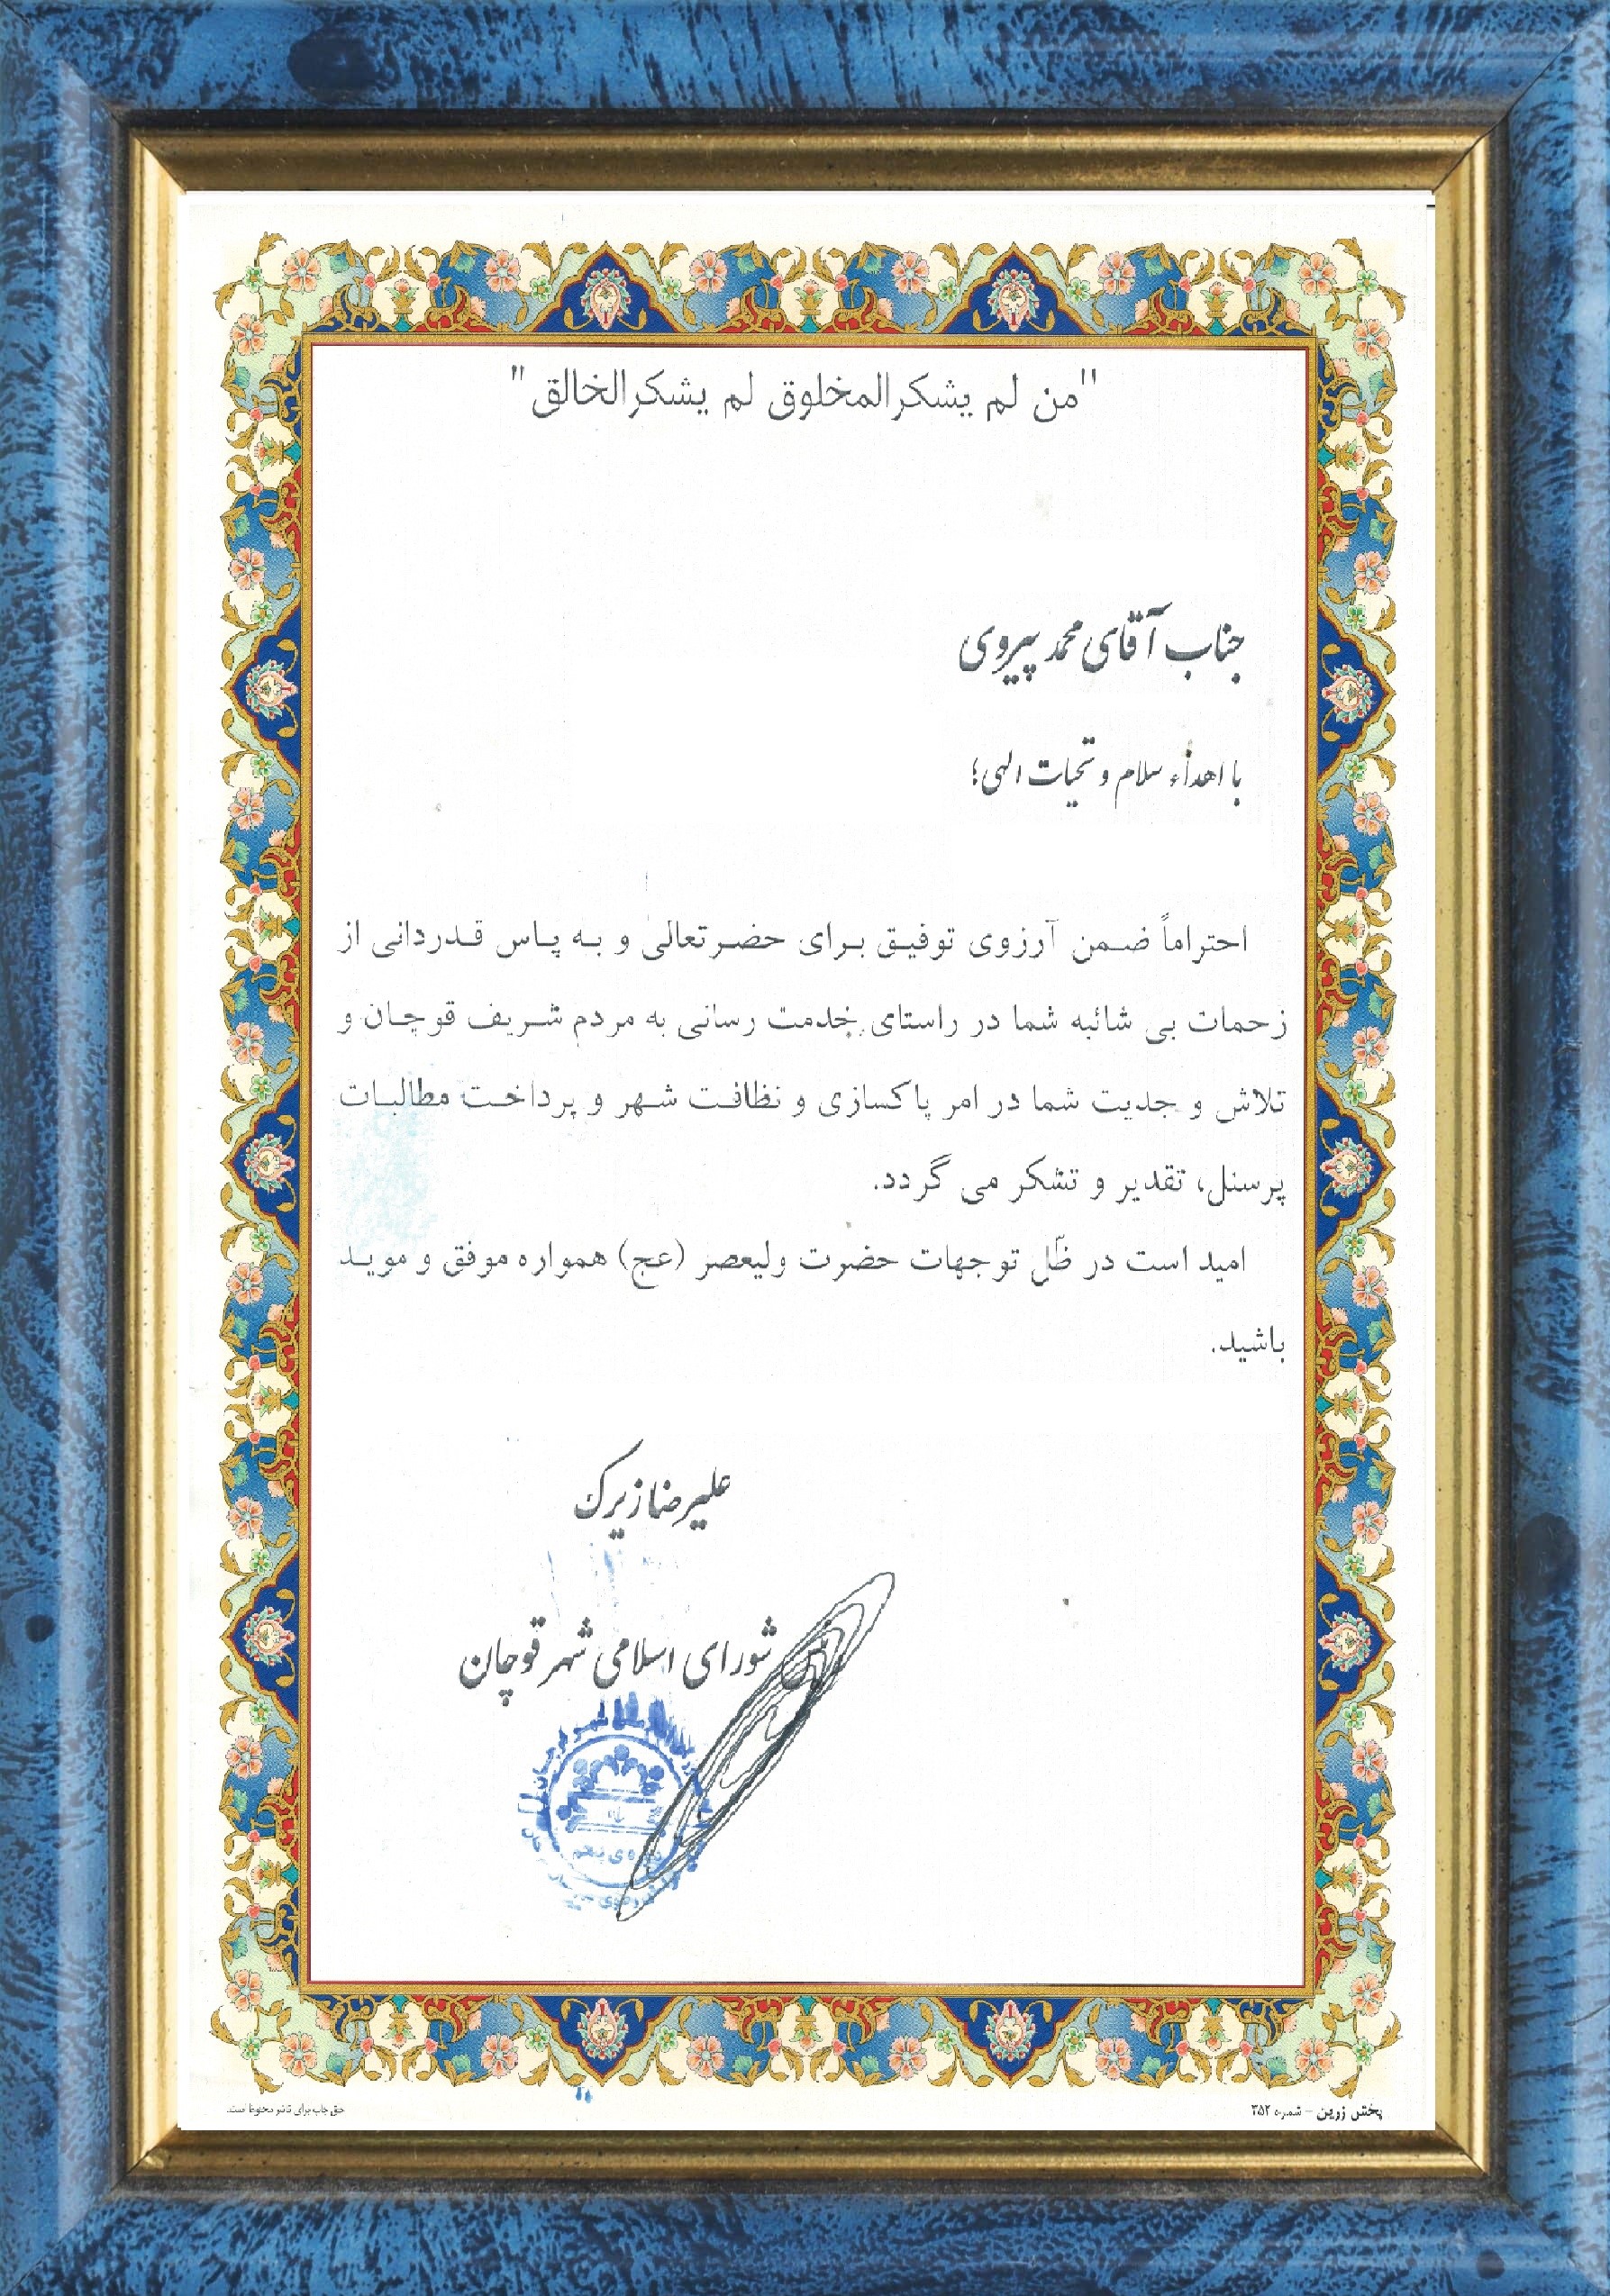 "من لم یشکرالمخلوق لم یشکرالخالق"
جناب آقای محمد پیروی
با اهداء سلام و تحیات الهی؛
احتراماً ضمن آرزوی توفیق برای حضرتعالی و به پاس قدردانی از
زحمات بی شائبه شما در راستای خدمت رسانی به مردم شریف قوچان و
تلاش و جدیت شما در امر پاکسازی و نظافت شهر و پرداخت مطالبات
پرسنل، تقدیر و تشکر می گردد.
امید است در ظّل توجهات حضرت ولیعصر (عج) همواره موفق و موید
باشید.
علیرضا زیرک
شورای اسلامی شهر قوچان
پخش زرین - شماره ۳۵۲
حق چاپ برای ناشر محفوظ است.